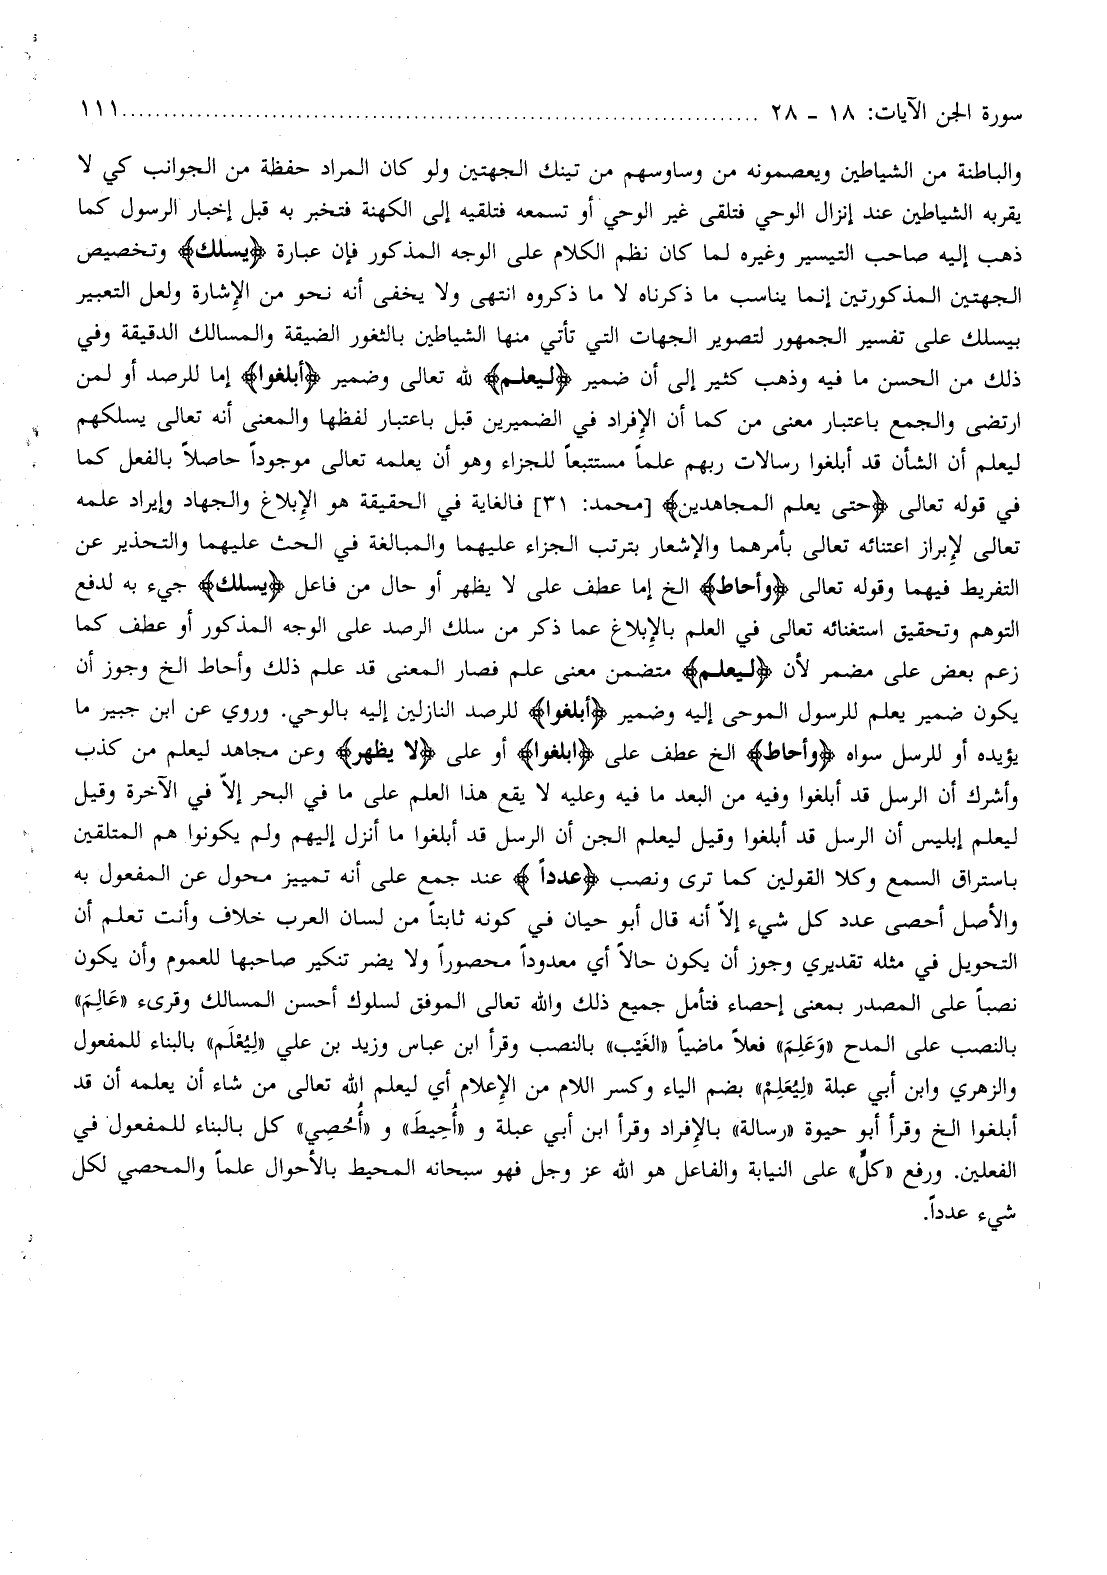 سورة الجن الآيات: ١٨ - ٢٨ ........................................................................... ١١١
والباطنة من الشياطين ويعصمونه من وساوسهم من تينك الجهتين ولو كان المراد حفظة من الجوانب كي لا
يقربه الشياطين عند إنزال الوحي فتلقى غير الوحي أو تسمعه فتلقيه إلى الكهنة فتخبر به قبل إخبار الرسول كما
ذهب إليه صاحب التيسير وغيره لما كان نظم الكلام على الوجه المذكور فإن عبارة ﴿يسلك﴾ وتخصيص
الجهتين المذكورتين إنما يناسب ما ذكرناه لا ما ذكروه انتهى ولا يخفى أنه نحو من الإشارة ولعل التعبير
بيسلك على تفسير الجمهور لتصوير الجهات التي تأتي منها الشياطين بالثغور الضيقة والمسالك الدقيقة وفي
ذلك من الحسن ما فيه وذهب كثير إلى أن ضمير ﴿ليعلم﴾ لله تعالى وضمير ﴿أبلغوا﴾ إما للرصد أو لمن
ارتضى والجمع باعتبار معنى من كما أن الإفراد في الضميرين قبل باعتبار لفظها والمعنى أنه تعالى يسلكهم
ليعلم أن الشأن قد أبلغوا رسالات ربهم علماً مستتبعاً للجزاء وهو أن يعلمه تعالى موجوداً حاصلاً بالفعل كما
في قوله تعالى ﴿حتى يعلم المجاهدين﴾ [محمد: ٣١] فالغاية في الحقيقة هو الإبلاغ والجهاد وإيراد علمه
تعالى لإبراز اعتنائه تعالى بأمرهما والإشعار بترتب الجزاء عليهما والمبالغة في الحث عليهما والتحذير عن
التفريط فيهما وقوله تعالى ﴿وأحاط﴾ الخ إما عطف على لا يظهر أو حال من فاعل ﴿يسلك﴾ جيء به لدفع
التوهم وتحقيق استغنائه تعالى في العلم بالإبلاغ عما ذكر من سلك الرصد على الوجه المذكور أو عطف كما
زعم بعض على مضمر لأن ﴿ليعلم﴾ متضمن معنى علم فصار المعنى قد علم ذلك وأحاط الخ وجوز أن
يكون ضمير يعلم للرسول الموحى إليه وضمير ﴿أبلغوا﴾ للرصد النازلين إليه بالوحي. وروي عن ابن جبير ما
يؤيده أو للرسل سواه ﴿وأحاط﴾ الخ عطف على ﴿ابلغوا﴾ أو على ﴿لا يظهر﴾ وعن مجاهد ليعلم من كذب
وأشرك أن الرسل قد أبلغوا وفيه من البعد ما فيه وعليه لا يقع هذا العلم على ما في البحر إلاّ في الآخرة وقيل
ليعلم إبليس أن الرسل قد أبلغوا وقيل ليعلم الجن أن الرسل قد أبلغوا ما أنزل إليهم ولم يكونوا هم المتلقين
باستراق السمع وكلا القولين كما ترى ونصب ﴿عدداً﴾ عند جمع على أنه تمييز محول عن المفعول به
والأصل أحصى عدد كل شيء إلاّ أنه قال أبو حيان في كونه ثابتاً من لسان العرب خلاف وأنت تعلم أن
التحويل في مثله تقديري وجوز أن يكون حالاً أي معدوداً محصوراً ولا يضر تنكير صاحبها للعموم وأن يكون
نصباً على المصدر بمعنى إحصاء فتأمل جميع ذلك والله تعالى الموفق لسلوك أحسن المسالك وقرىء «عَالِمَ»
بالنصب على المدح «وَعَلِمَ» فعلاً ماضياً «الغَيْب» بالنصب وقرأ ابن عباس وزيد بن علي «لِيُعْلَم» بالبناء للمفعول
والزهري وابن أبي عبلة «لِيُعَلِمْ» بضم الياء وكسر اللام من الإعلام أي ليعلم الله تعالى من شاء أن يعلمه أن قد
أبلغوا الخ وقرأ أبو حيوة «رسالة» بالإفراد وقرأ ابن أبي عبلة و «أُحِيطَ» و «أُحْصِي» كل بالبناء للمفعول في
الفعلين. ورفع «كلٌ» على النيابة والفاعل هو الله عز وجل فهو سبحانه المحيط بالأحوال علماً والمحصي لكل
شيء عدداً.